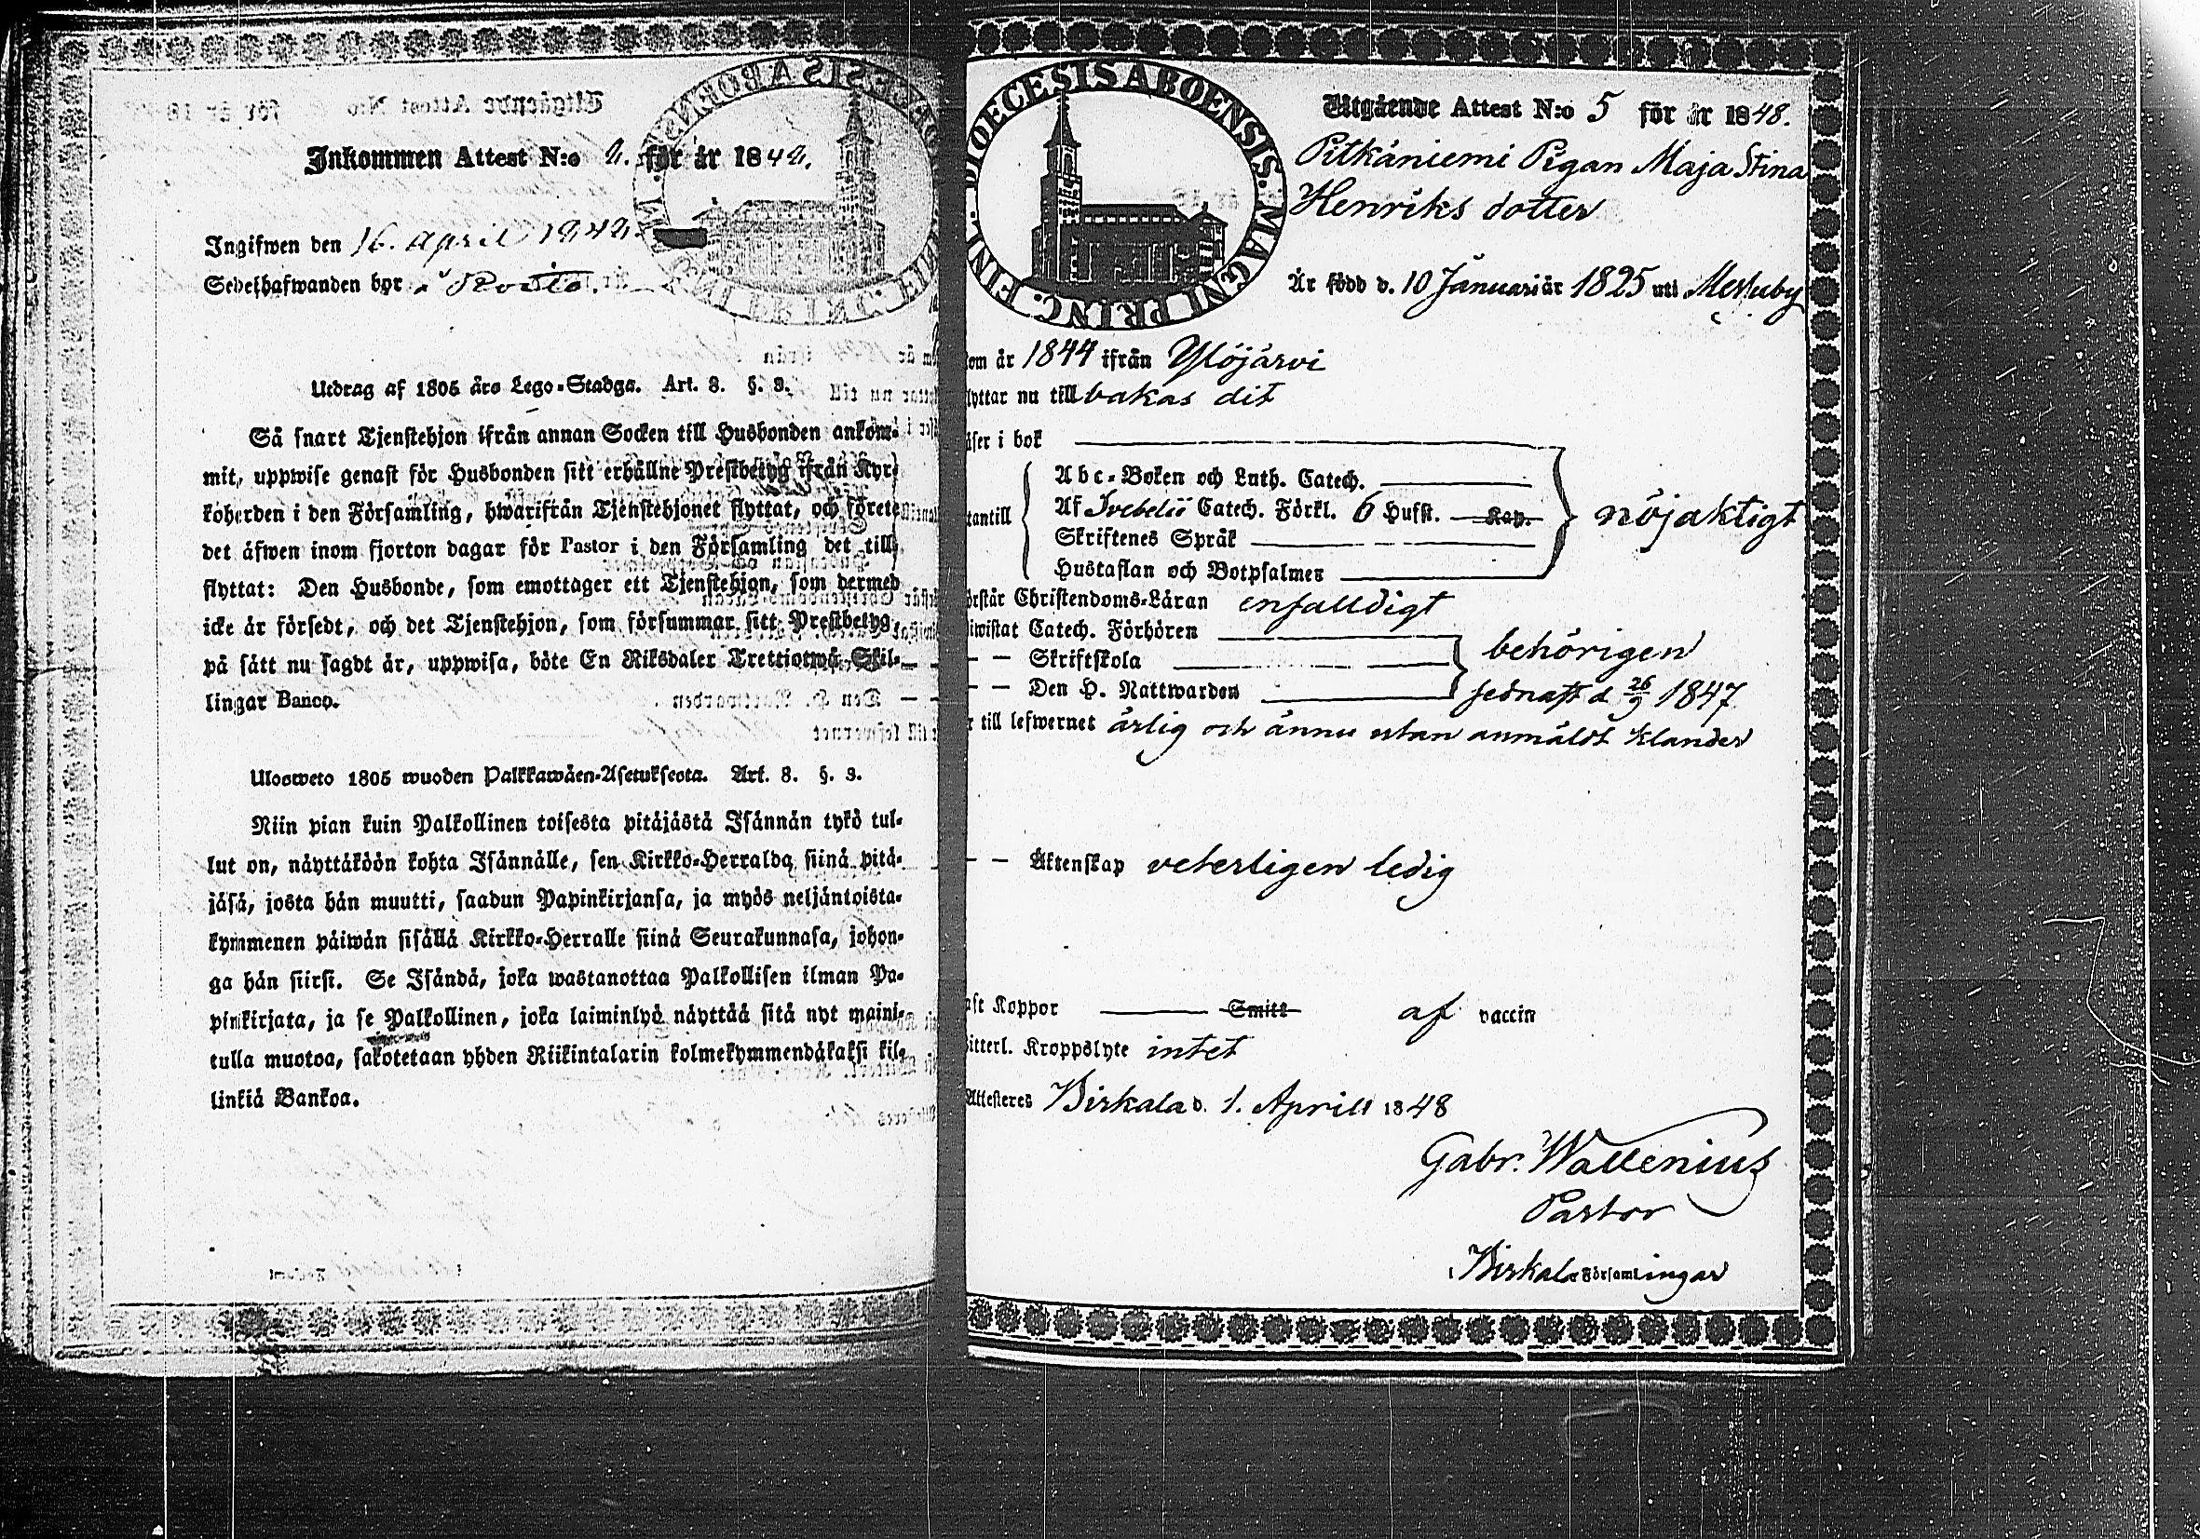 Inkommen Attest N:o 2. för år 1842.
Ingifwen den 16. April 1842
Sedelhafwanden bor i
Utdrag af 1805 års Lego-Stadga. Art. 8. §. 3.
Så snart Tjenstehjon ifrån annan Socken till Husbonden ankom-
mit, uppwise genast för Husbonden sitt erhållne Prestbetyg ifrån Kyr-
koherden i den Församling, hwarifrån Tjenstehjonet flyttat, och förete
det äfwen inom fjorton dagar för Pastor i den Församling det till-
flyttat: Den Husbonde, som emottager ett Tjenstehjon, som dermed
icke är försedt, och det Tjenstehjon, som försummar sitt Prestbetyg,
på sätt nu sagdt är, uppwisa, böte En Riksdaler Trettiotwå Skil-
lingar Banco.
Ulosweto 1805 wuoden Palkkawäen-Asetuksesta. Art. 8. §. 3.
Niin pian kuin Palkollinen toisesta pitäjästä Isännän tykö tul-
lut on, näyttäköön kohta Isännälle, sen Kirkko-Herralda siinä pitä-
jäsä, josta hän muutti, saadun Papinkirjansa, ja myös neljäntoista-
kymmenen päiwän sisällä Kirkko-Herralle siinä Seurakunnasa, johon-
ga hän siirsi. Se Isändä, joka wastanottaa Palkollisen ilman Pa-
pinkirjata, ja se Palkollinen, joka laiminlyö näyttää sitä nyt maini-
tulla muotoa, sakotetaan yhden Riikintalarin kolmekymmendäkaksi kil-
linkiä Bankoa.
DIOECESIS ABOENSIS. MAGNI PRINC. FINL.
Utgående Attest N:o 5 för år 1848.
Pitkäniemi Pigan Maja Stina
Henriks dotter
Är född d. 10 Januari år 1825 uti
om år 1844 ifrån Ylöjärvi
lyttar nu till bakas dit
äser i bok
Abc-Boken och Luth. Catech.
tantill Af Svebelii Catech. Förkl. 6 Hufst. Kap. nöjaktigt
Skriftenes Språk
Hustaflan och Botpsalmer
örstår Christendoms-Läran enfalldigt
iwistat Catech. Förhören
— — Skriftskola behörigen
— — Den H. Nattwarden sednast d 26/9 1847
r till lefwernet ärlig och ännu utan anmäldt klander
— — Äktenskap veterligen ledig
aft Koppor Smitt af vaccin
itterl. Kroppslyte intet
Attesteres Birkala d. 1. April 1848
Gabr. Wallenius
Pastor
i Birkala Församlingar